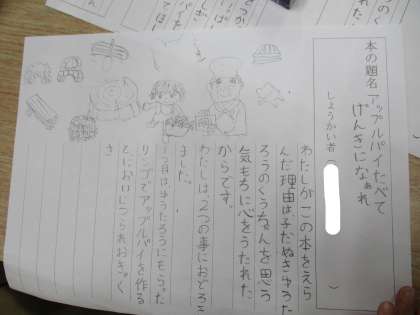 本の題名「アップルパイたべて
げんきになぁれ
しょうかい者(　　　　)
わたしがこの本をえら
んだ理由は子だぬききゅうた
ろうのくうちゃんを思う
気もちに心をうたれた
からです。
わたしは、2つの事におどろき
ました。
1つ目は、きゅうたろうにもらった
リンゴでアップルパイを作る
とにおいにつられおきゃく
さ